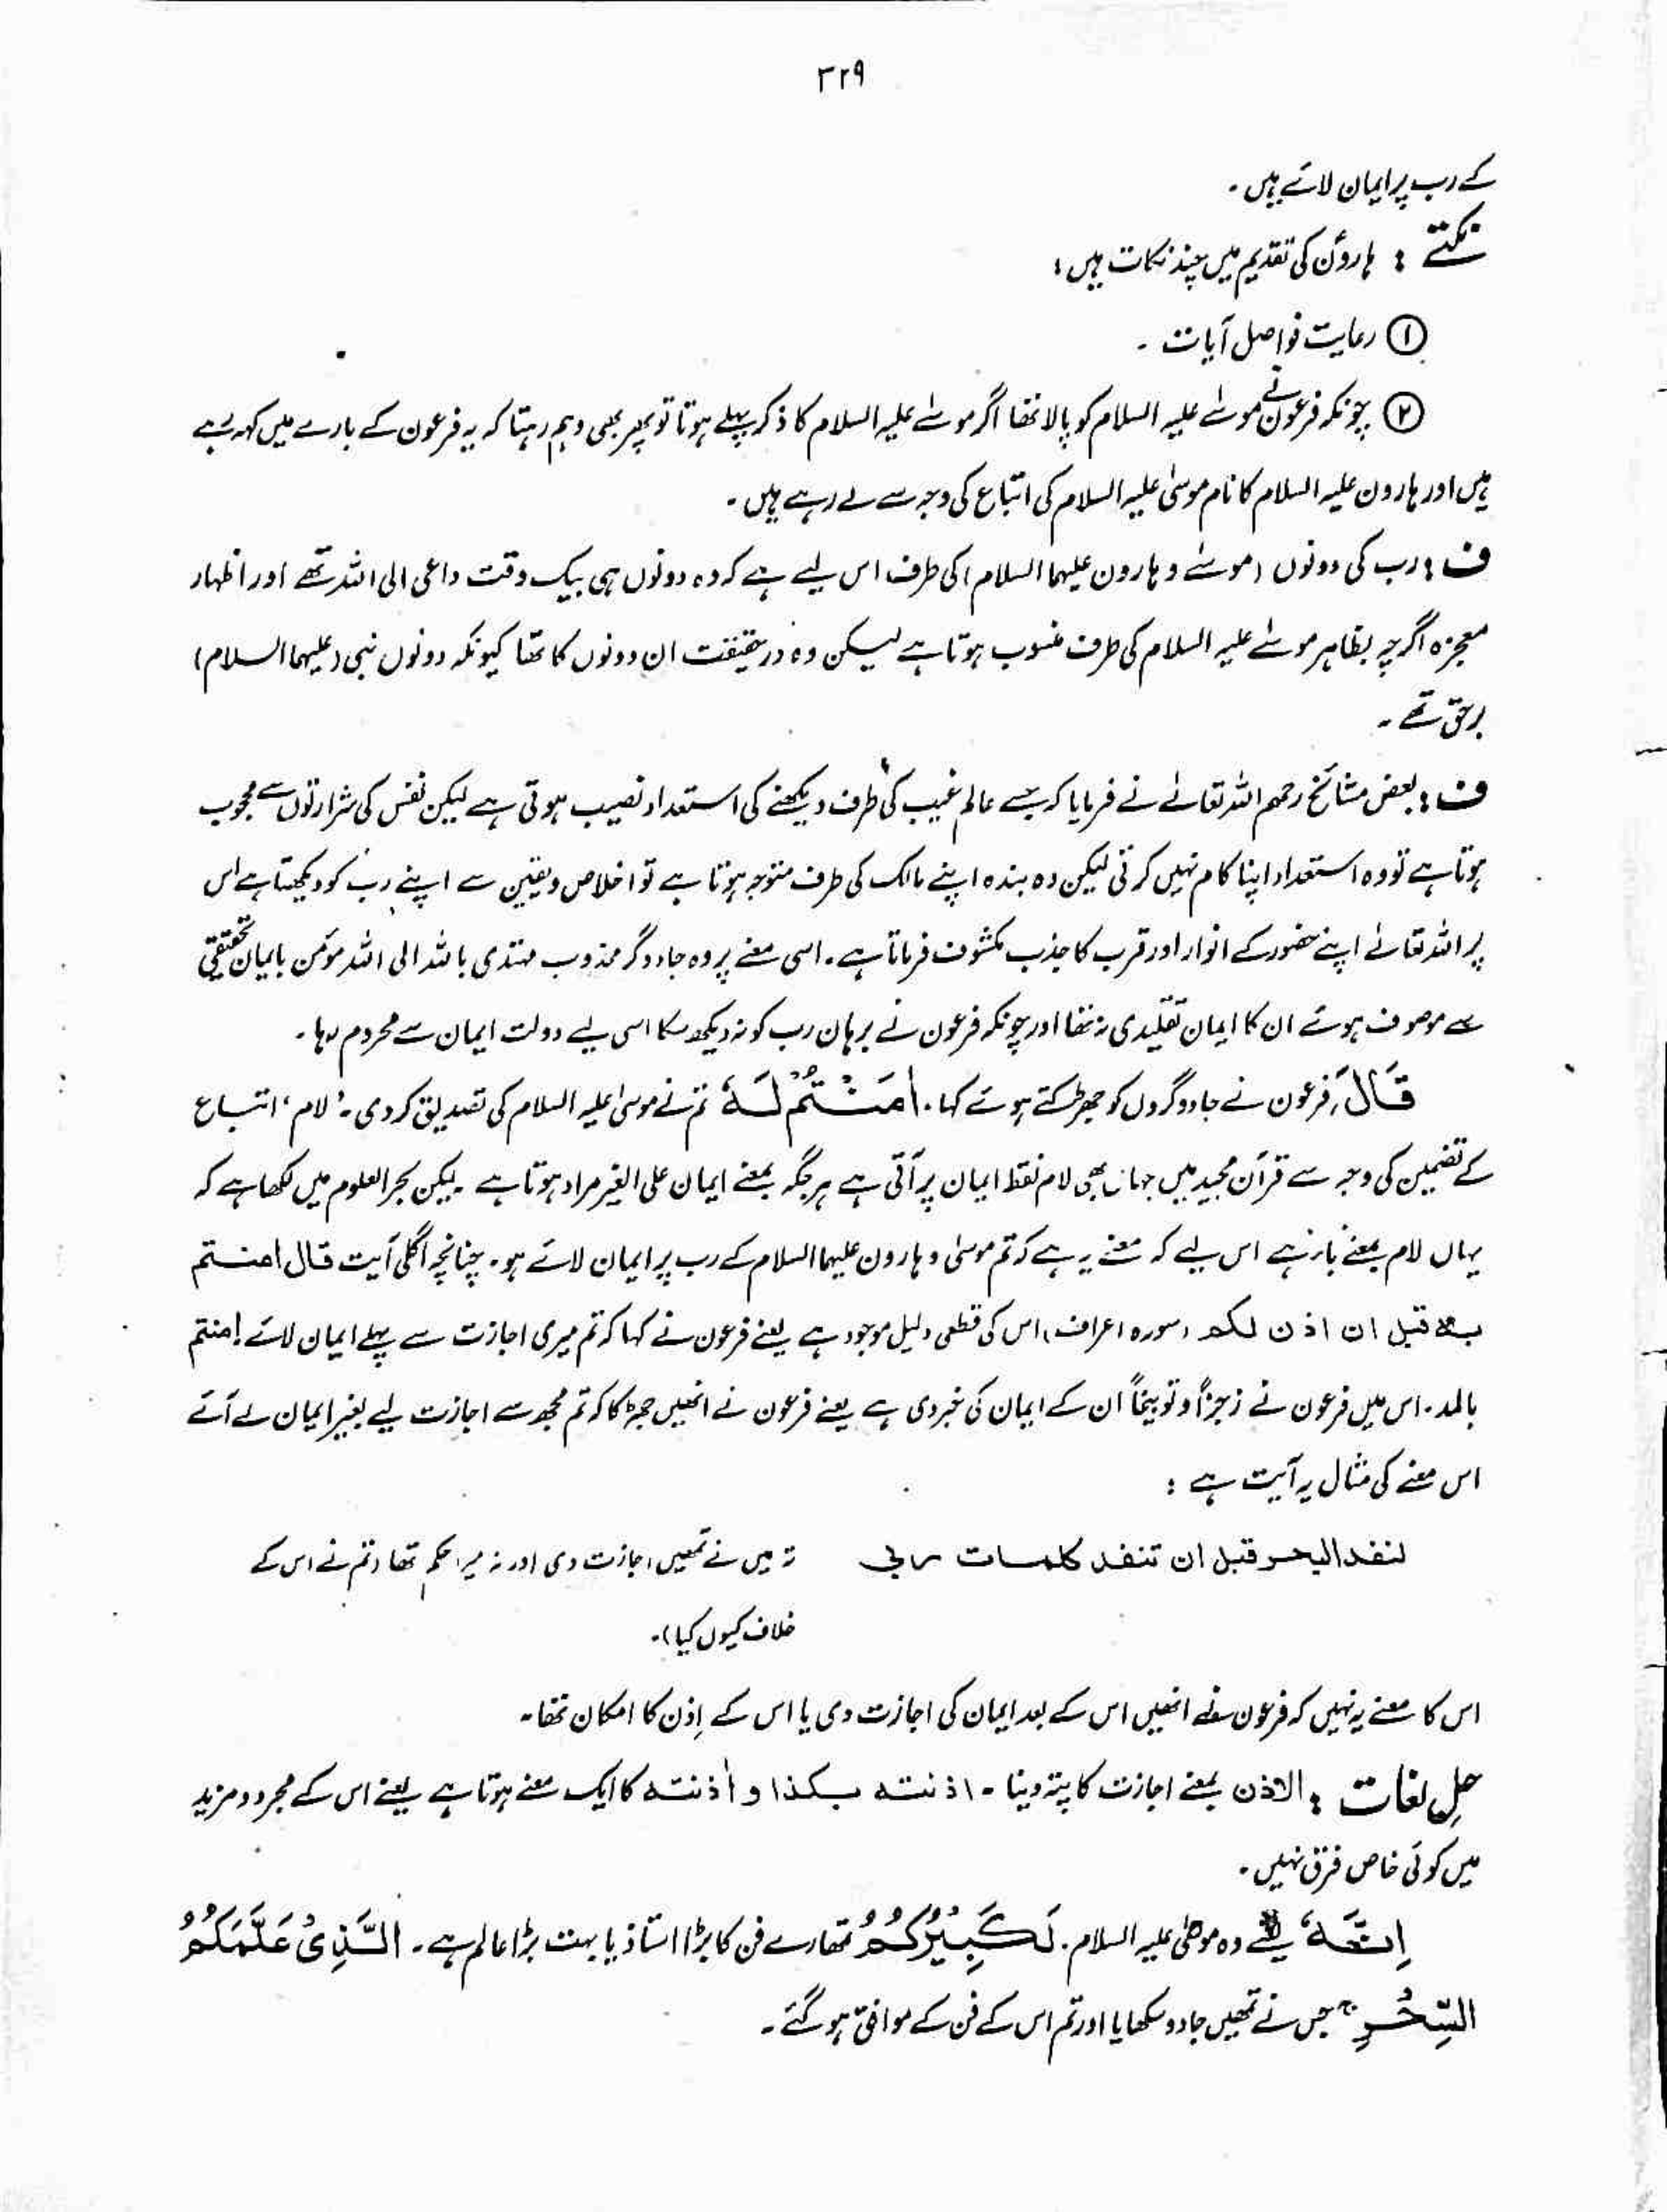 ۳۲۹
کے رب پر ایمان لائے ہیں۔
نکتے : ہارون کی تقدیم میں چند نکات ہیں :
① رعایت فواصل آیات ۔
② چونکہ فرعون نے موسٰے علیہ السلام کو پالا تھا اگر موسٰے علیہ السلام کا ذکر پہلے ہوتا تو پھر بھی وہم رہتا کہ یہ فرعون کے بارے میں کہہ رہے
ہیں اور ہارون علیہ السلام کا نام موسیٰ علیہ السلام کی اتباع کی وجہ سے لے رہے ہیں ۔
ف : رب کی دونوں (موسٰے و ہارون علیہما السلام) کی طرف اس لیے ہے کہ وہ دونوں ہی بیک وقت داعی الی اللہ تھے اور اظہار
معجزہ اگرچہ بظاہر موسٰے علیہ السلام کی طرف منسوب ہوتا ہے لیکن وہ درحقیقت ان دونوں کا تھا کیونکہ دونوں نبی (علیہما السلام)
برحق تھے ۔
ف : بعض مشائخ رحمہم اللہ تعالےٰ نے فرمایا کہ جسے عالم غیب کی طرف دیکھنے کی استعداد نصیب ہوتی ہے لیکن نفس کی شرارتوں سے محجوب
ہوتا ہے تو وہ استعداد اپنا کام نہیں کرتی لیکن وہ بندہ اپنے مالک کی طرف متوجہ ہوتا ہے تو اخلاص و یقین سے اپنے رب کو دیکھتا ہے اس
پر اللہ تعالےٰ اپنے حضور کے انوار اور قرب کا جذب مکشوف فرماتا ہے ۔ اسی معنے پر وہ جادوگر مجذوب مہتدی باللہ الی اللہ مؤمن بایمان تحقیقی
سے موصوف ہوئے ان کا ایمان تقلیدی نہ تھا اور چونکہ فرعون نے برہان رب کو نہ دیکھ سکا اسی لیے دولت ایمان سے محروم رہا ۔
قَالَ، فرعون نے جادوگروں کو جھڑکتے ہوئے کہا ۔ اٰمَنْتُمْ لَهٗ تم نے موسیٰ علیہ السلام کی تصدیق کر دی ۔ 'لام' اتباع
کے تضمین کی وجہ سے قرآن مجید میں جہاں بھی لام لفظ ایمان پر آتی ہے ہر جگہ بمعنے ایمان علی الغیر مراد ہوتا ہے ۔ لیکن بحر العلوم میں لکھا ہے کہ
یہاں لام بمعنے باء ہے اس لیے کہ معنے یہ ہے کہ تم موسیٰ و ہارون علیہما السلام کے رب پر ایمان لائے ہو ۔ چنانچہ اگلی آیت قال اٰمنتم
به قبل ان اٰذن لکم (سورہ اعراف) اس کی قطعی دلیل موجود ہے یعنے فرعون نے کہا کہ تم میری اجازت سے پہلے ایمان لائے اٰمنتم
بالمد ۔ اس میں فرعون نے زجراً و توبیخاً ان کے ایمان کی خبر دی ہے یعنے فرعون نے انھیں جھڑکا کہ تم مجھ سے اجازت لیے بغیر ایمان لے آئے
اس معنے کی مثال یہ آیت ہے :
لنفد البحر قبل ان تنفد کلمات ربی نہ میں نے تمھیں اجازت دی اور نہ میرا حکم تھا (تم نے اس کے
خلاف کیوں کیا)۔
اس کا معنے یہ نہیں کہ فرعون نے انھیں اس کے بعد ایمان کی اجازت دی یا اس کے اِذن کا امکان تھا۔
حل لغات : الاذن بمعنے اجازت کا پتہ دینا ۔ اذنته بکذا و اٰذنته کا ایک معنے ہوتا ہے یعنے اس کے مجرد و مزید
میں کوئی خاص فرق نہیں ۔
اِنَّهٗ بے وہ موسیٰ علیہ السلام ۔ لَکَبِیْرُکُمُ تمھارے فن کا بڑا استاذ یا بہت بڑا عالم ہے ۔ الَّذِیْ عَلَّمَکُمُ
السِّحْرَ ج جس نے تمھیں جادو سکھایا اور تم اس کے فن کے موافق ہو گئے ۔